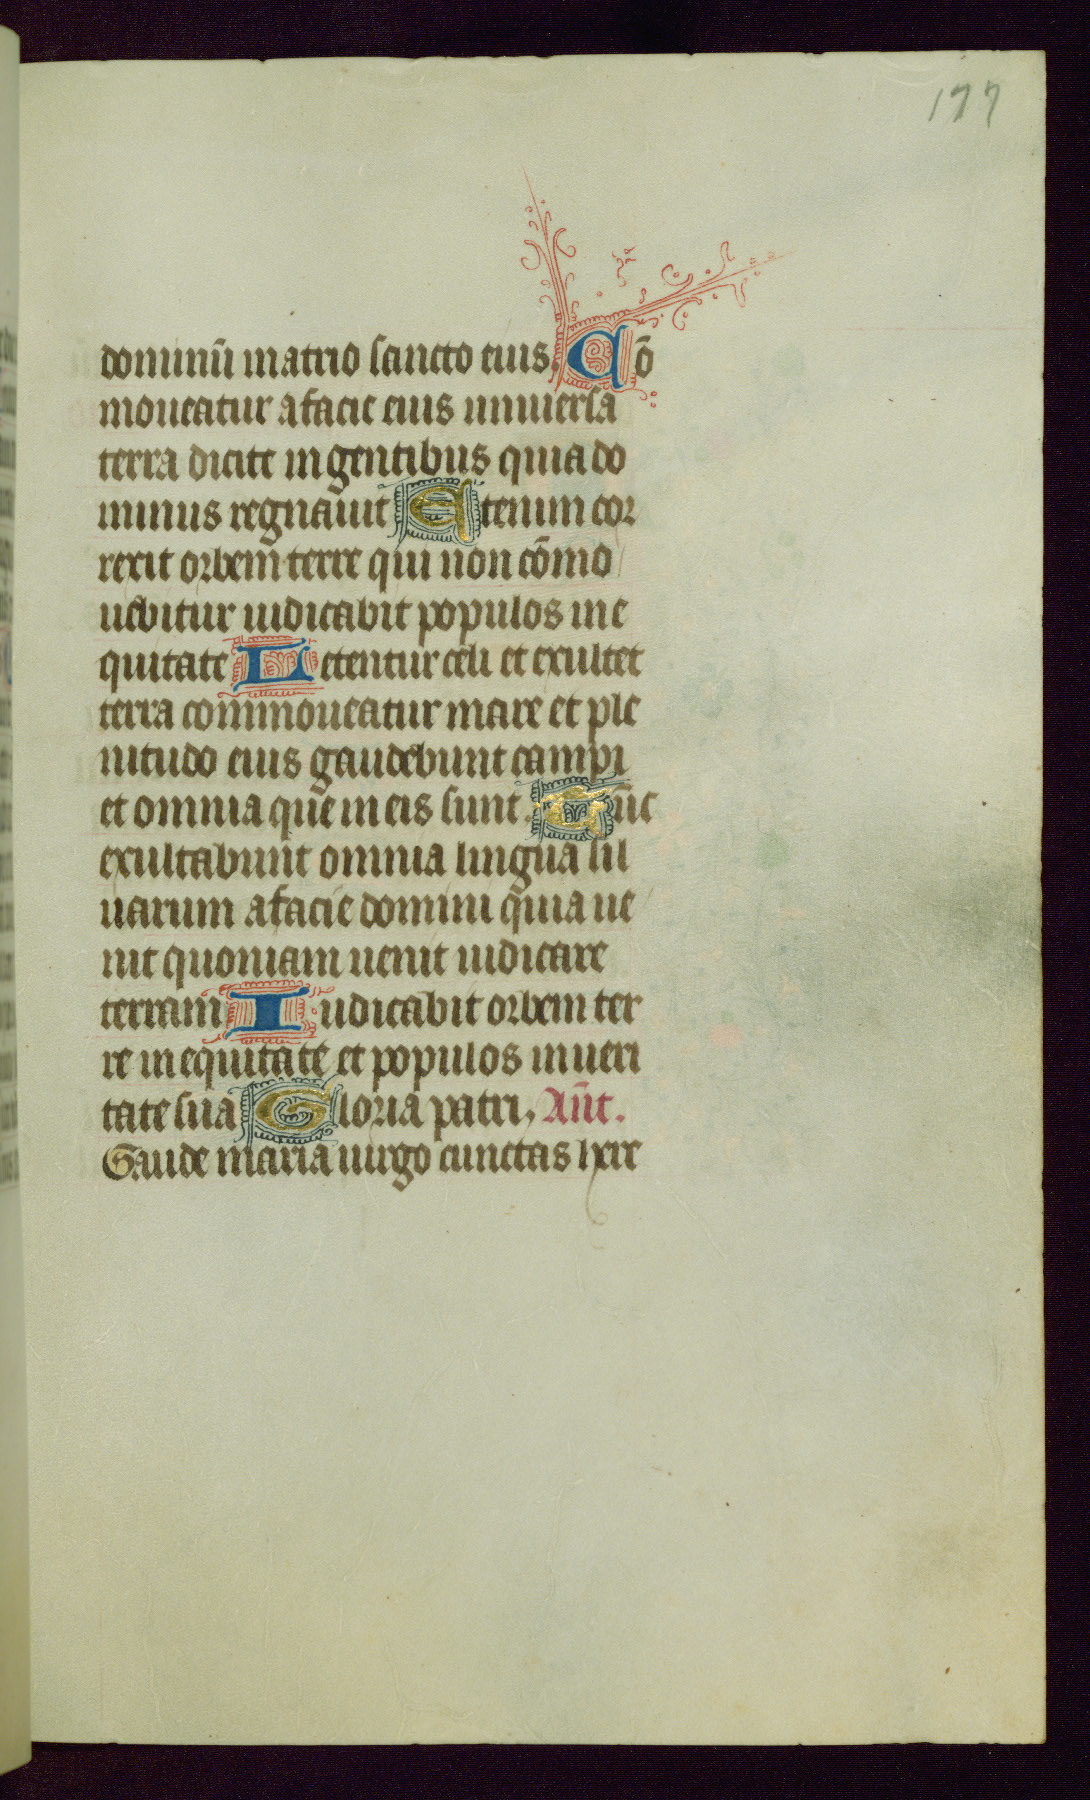 177
dominū in atrio sancto eius. Cō
moueatur a facie eius uniuersa
terra dicite in gentibus quia do
minus regnauit Etenim cor
rexit orbem terre qui non cōmo
uebitur iudicabit populos in e
quitate Letentur celi et exultet
terra commoueatur mare et ple
nitudo eius gaudebunt campi
et omnia que in eis sunt. Tūc
exultabunt omnia lingua sil
uarum a facie domini quia ue
nit quoniam uenit iudicare
terram Iudicabit orbem ter
re in equitate et populos in ueri
tate sua Gloria patri, Añt.
Gaude maria uirgo cunctas here